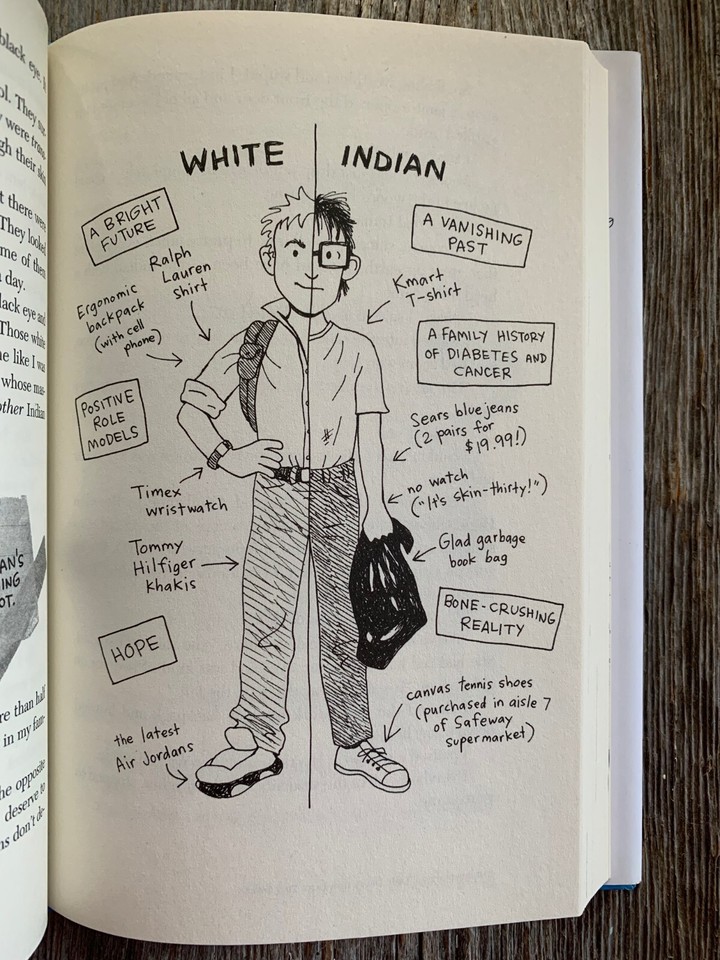 black eye.
ol. They
were trans-
gh their skin
t there were
They looked
me of them
day.
lack eye and
Those white
me like I was
whose mas-
other Indian
AN'S
ING
OT.
re than half
in my fam-
he opposite
deserve to
ns don't de-
WHITE
INDIAN
A BRIGHT
FUTURE
Ralph
Lauren
shirt
Ergonomic
backpack
(with cell
phone)
POSITIVE
ROLE
MODELS
Timex
wristwatch
Tommy
Hilfiger
khakis
HOPE
the latest
Air Jordans
A VANISHING
PAST
Kmart
T-shirt
A FAMILY HISTORY
OF DIABETES AND
CANCER
Sears blue jeans
(2 pairs for
$19.99!)
no watch
("It's skin-thirty!")
Glad garbage
book bag
BONE-CRUSHING
REALITY
canvas tennis shoes
(purchased in aisle 7
of Safeway
supermarket)